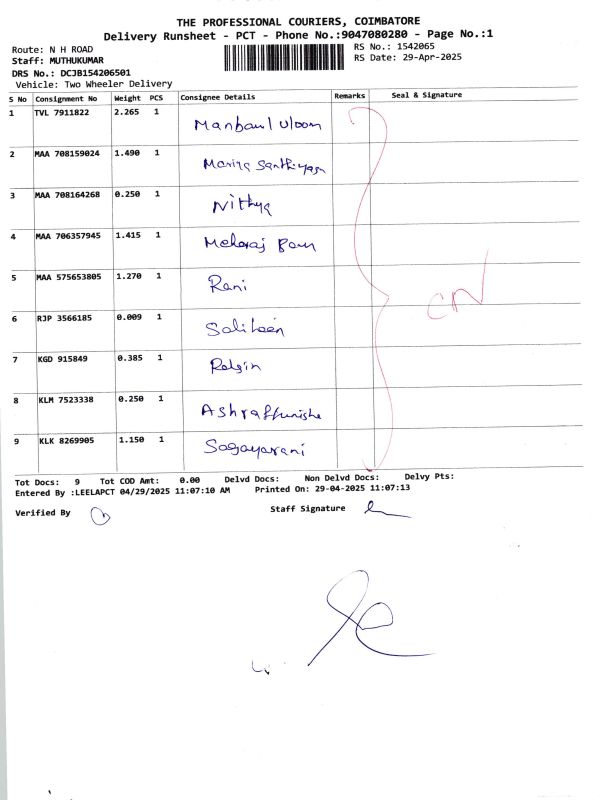 THE PROFESSIONAL COURIERS, COIMBATORE
Delivery Runsheet - PCT - Phone No.:9047080280 - Page No.:1
Route: N H ROAD
RS No.: 1542065
Staff: MUTHUKUMAR
RS Date: 29-Apr-2025
DRS No.: DCJB154206501
Vehicle: Two Wheeler Delivery
S No Consignment No Weight PCS Consignee Details Remarks Seal & Signature
1 TVL 7911822 2.265 1 Manbaul Uloom
2 MAA 708159024 1.490 1 Mariya
3 MAA 708164268 0.250 1 Nithya
4 MAA 706357945 1.415 1 Meharaj Banu
5 MAA 575653805 1.270 1 Rani
6 RJP 3566185 0.009 1 Saliheen
7 KGD 915849 0.385 1
8 KLM 7523338 0.250 1 Ashraffunisha
9 KLK 8269905 1.150 1 Sagayarani
CN
Tot Docs: 9 Tot COD Amt: 0.00 Delvd Docs: Non Delvd Docs: Delvy Pts:
Entered By :LEELAPCT 04/29/2025 11:07:10 AM Printed On: 29-04-2025 11:07:13
Verified By Staff Signature